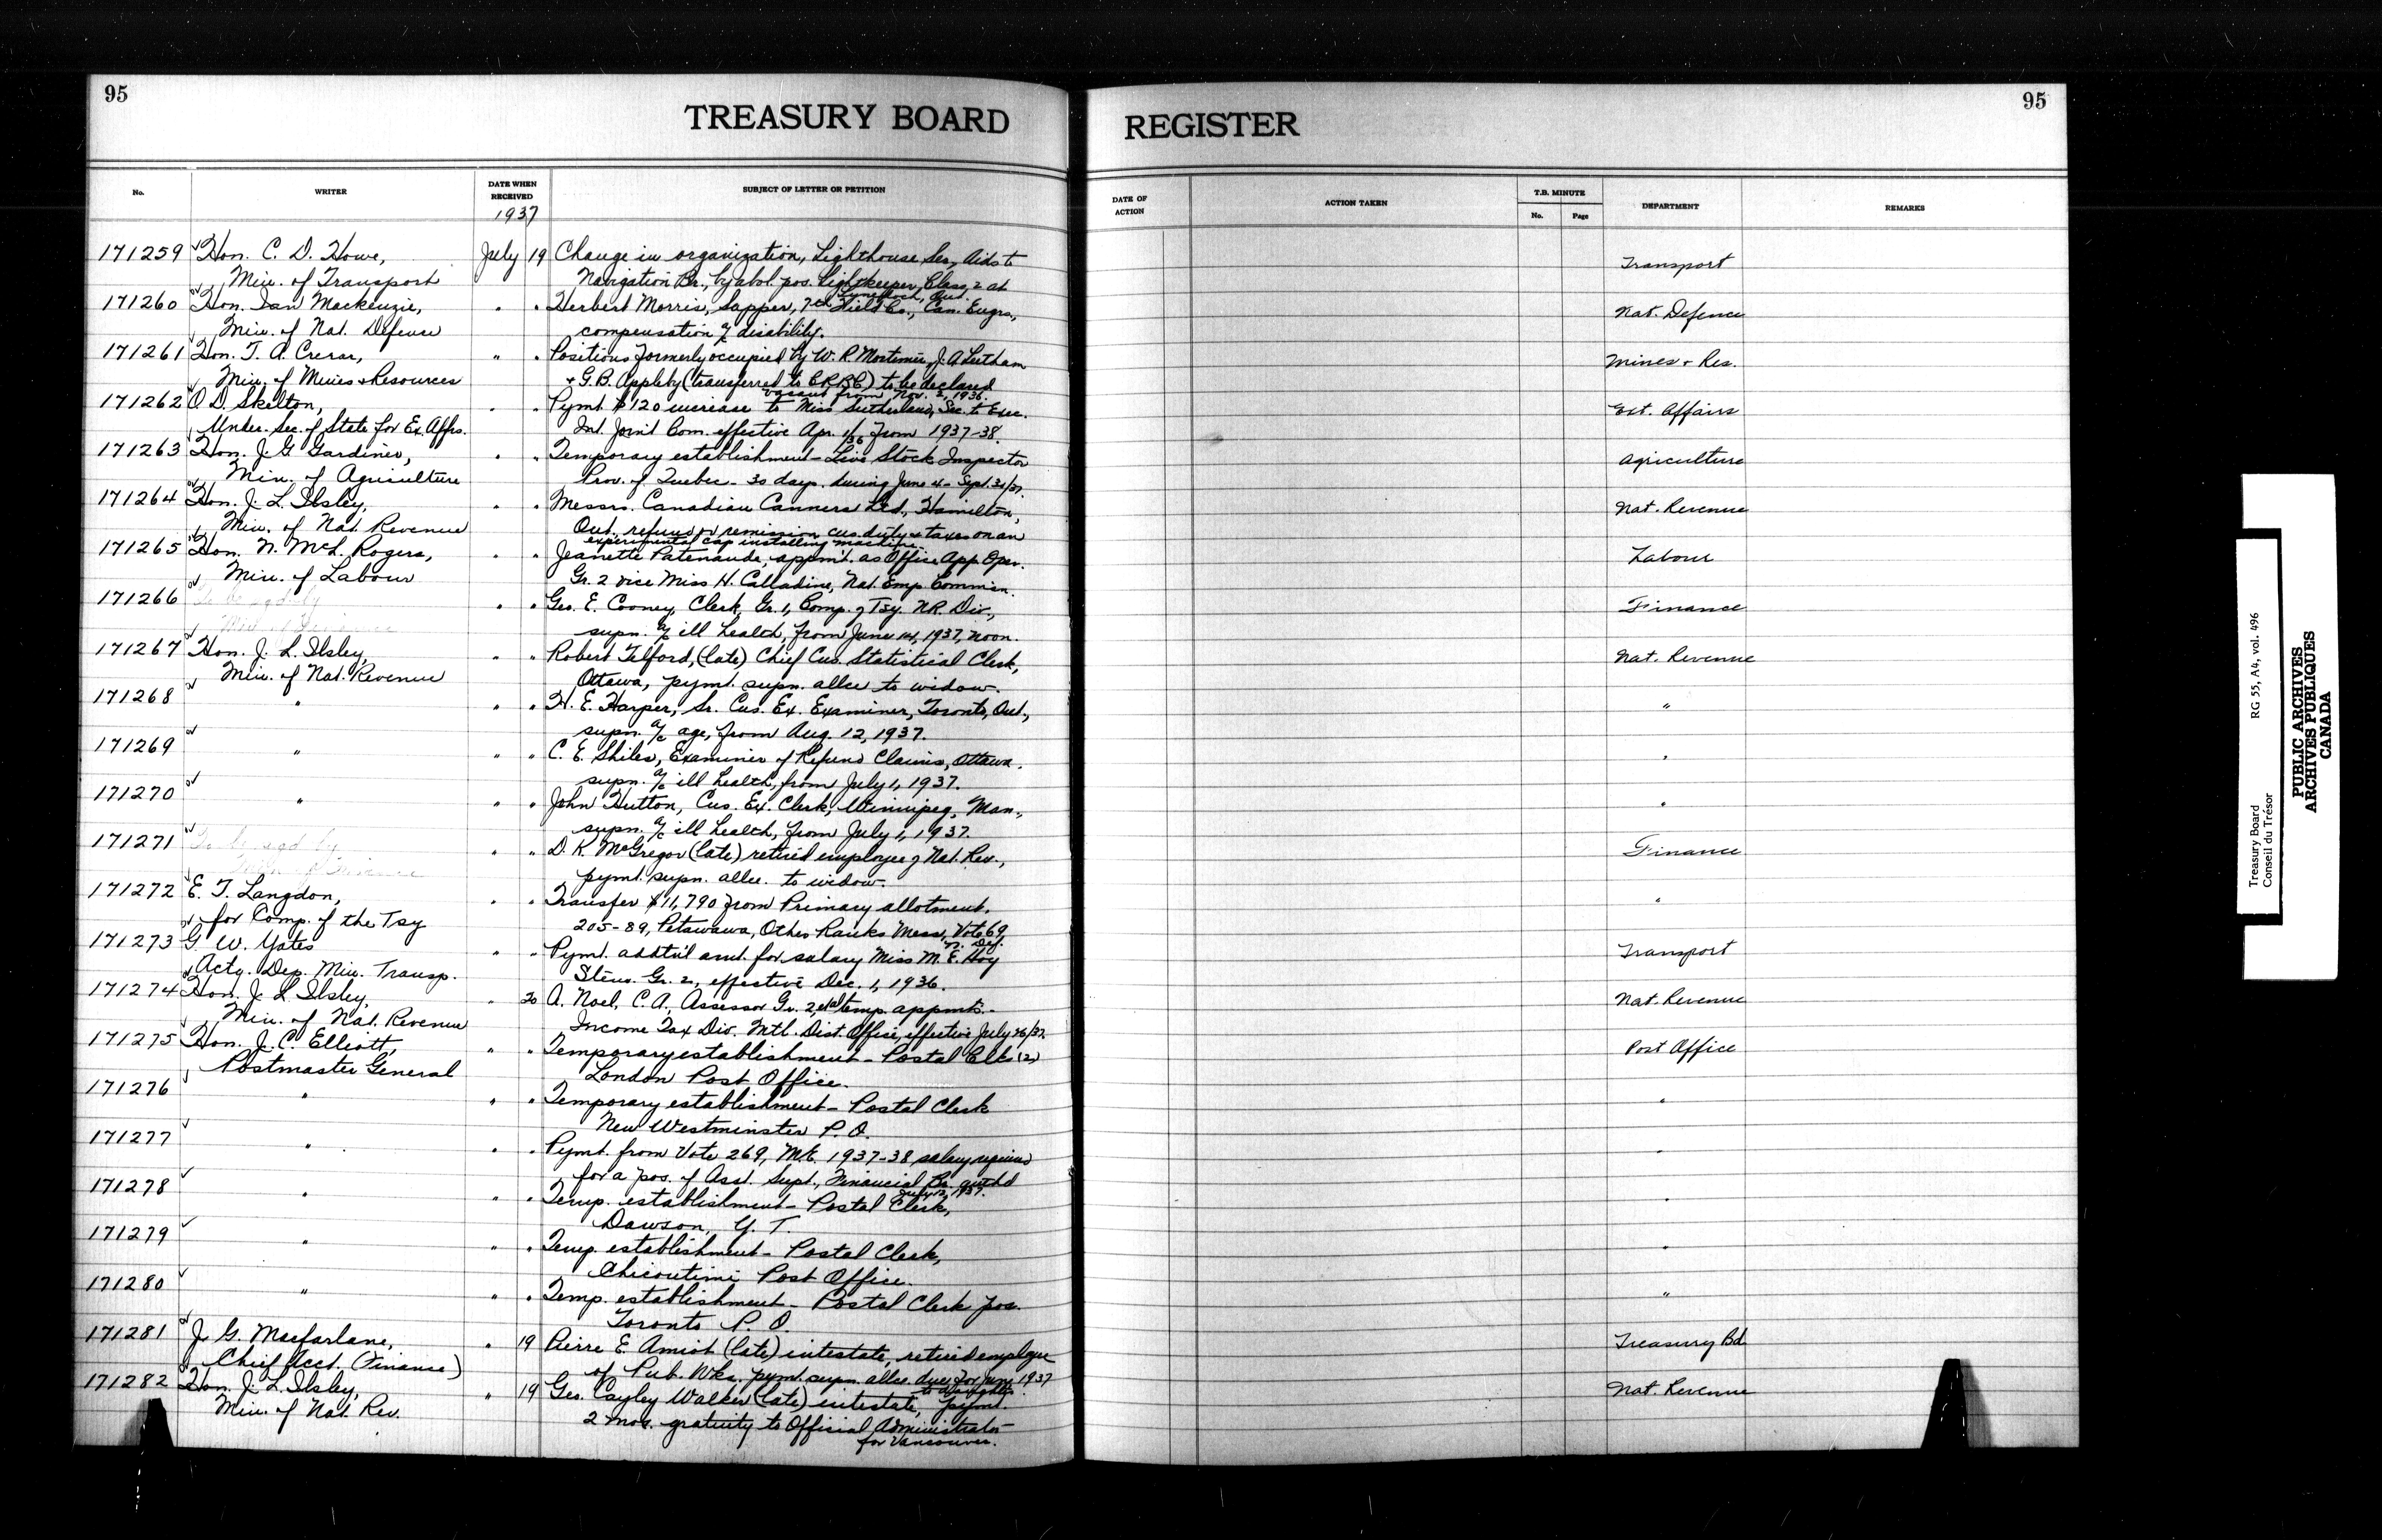 95
TREASURY BOARD
No.
WRITER
DATE WHEN RECEIVED
1937
SUBJECT OF LETTER OR PETITION
171259 Hon. C. D. Howe, July 19 Change in organization, Lighthouse Ser, Aids to
Min. of Transport Navigation Br., by abol. pos. Lightkeeper, Class 2 at
171260 Hon. Ian Mackenzie, " " Herbert Morris, Sapper, 7th Field Co., Can. Engrs.,
Min. of Nat. Defence compensation a/c disability.
171261 Hon. T. A. Crerar, " " Positions formerly occupied by W. R. Mortimer, J. A. Leetham
Min. of Mines & Resources & G. B. Appleby (transferred to C.R.B.C) to be declared
vacant from Nov. 2, 1936.
171262 O D. Skelton, " " Pymt. $120 increase to Miss Sutherland, Sec. to Exec.
Under. Sec. of State for Ex. Affrs. Int. Joint Com. effective Apr. 1/36 from 1937-38.
171263 Hon. J. G. Gardiner, " " Temporary establishment - Live Stock Inspector
Min. of Agriculture Prov. of Quebec - 30 days during June 4 - Sept. 30/37.
171264 Hon. J. L. Ilsley, " " Messrs. Canadian Canners Ltd., Hamilton,
Min. of Nat. Revenue Ont., refund or remission cus. duty & taxes on an
experimental cap installing machine.
171265 Hon. N. McL. Rogers, " " Jeanette Patenaude, appmt. as Office App. Oper.
Min. of Labour Gr. 2 vice Miss H. Calladine, Nat. Emp. Commisn.
171266 " " Geo. E. Cooney, Clerk, Gr. 1, Comp. of Tsy. N.R. Div.,
supn. a/c ill health, from June 14, 1937, noon.
171267 Hon. J. L. Ilsley, " " Robert Telford, (late) Chief Cus. Statistical Clerk,
Min. of Nat. Revenue Ottawa, pymt. supn. allce to widow.
171268 " " " H. E. Harper, Sr. Cus. Ex. Examiner, Toronto, Ont.,
supn. a/c age, from Aug. 12, 1937.
171269 " " " C. E. Shiles, Examiner of Refund Claims, Ottawa.
supn. a/c ill health, from July 1, 1937.
171270 " " " John Hutton, Cus. Ex. Clerk, Winnipeg, Man.,
supn. a/c ill health, from July 1, 1937.
171271 " " D. K. McGregor (late) retired employee of Nat. Rev.,
pymt. supn. allce. to widow.
171272 E. T. Langdon, " " Transfer $11,790 from Primary allotment.
for Comp. of the Tsy 205-89, Petawawa, Other Ranks Mess, Vote 69,
N. Def.
171273 G. W. Yates " " Pymt. addt'nl amt. for salary Miss M. E. Hoy
Actg. Dep. Min. Transp. Steno. Gr. 2, effective Dec. 1, 1936.
171274 Hon. J. L. Ilsley, " 20 A. Noel, C. A., Assessor Gr. 2, temp. appmt. -
Min. of Nat. Revenue Income Tax Div. Mtl. Dist. Office, effective July 26/37.
171275 Hon. J. C. Elliott, " " Temporary establishment - Postal Clks (2)
Postmaster General London Post Office.
171276 " " " Temporary establishment - Postal Clerk
New Westminster P. O.
171277 " " " Pymt. from Vote 269, M.E. 1937-38, salary required
for a pos. of Asst. Supt., Financial Br. authd
July 12, 1937.
171278 " " " Temp. establishment - Postal Clerk,
Dawson, Y. T.
171279 " " " Temp. establishment - Postal Clerk,
Chicoutimi Post Office.
171280 " " " Temp. establishment - Postal Clerk pos.
Toronto P. O.
171281 J. G. Macfarlane, " 19 Pierre E. Amiot (late) intestate, retired employee
Chief Acct. (Finance) of Pub. Wks. pymt. supn. allce. due for 1937
to daughter.
171282 Hon. J. L. Ilsley, " 19 Geo. Cayley Walker (late) intestate, pymt.
Min. of Nat. Rev. 2 mos. gratuity to Official Administrator
for Vancouver.
95
REGISTER
DATE OF ACTION
ACTION TAKEN
T.B. MINUTE
No.
Page
DEPARTMENT
REMARKS
Transport
Nat. Defence
Mines & Res.
Ext. Affairs
Agriculture
Nat. Revenue
Labour
Finance
Nat. Revenue
"
"
"
Finance
"
Transport
Nat. Revenue
Post Office
"
"
"
"
"
Treasury Bd
Nat. Revenue
Treasury Board
Conseil du Trésor
RG 55, A4, vol. 496
PUBLIC ARCHIVES
ARCHIVES PUBLIQUES
CANADA